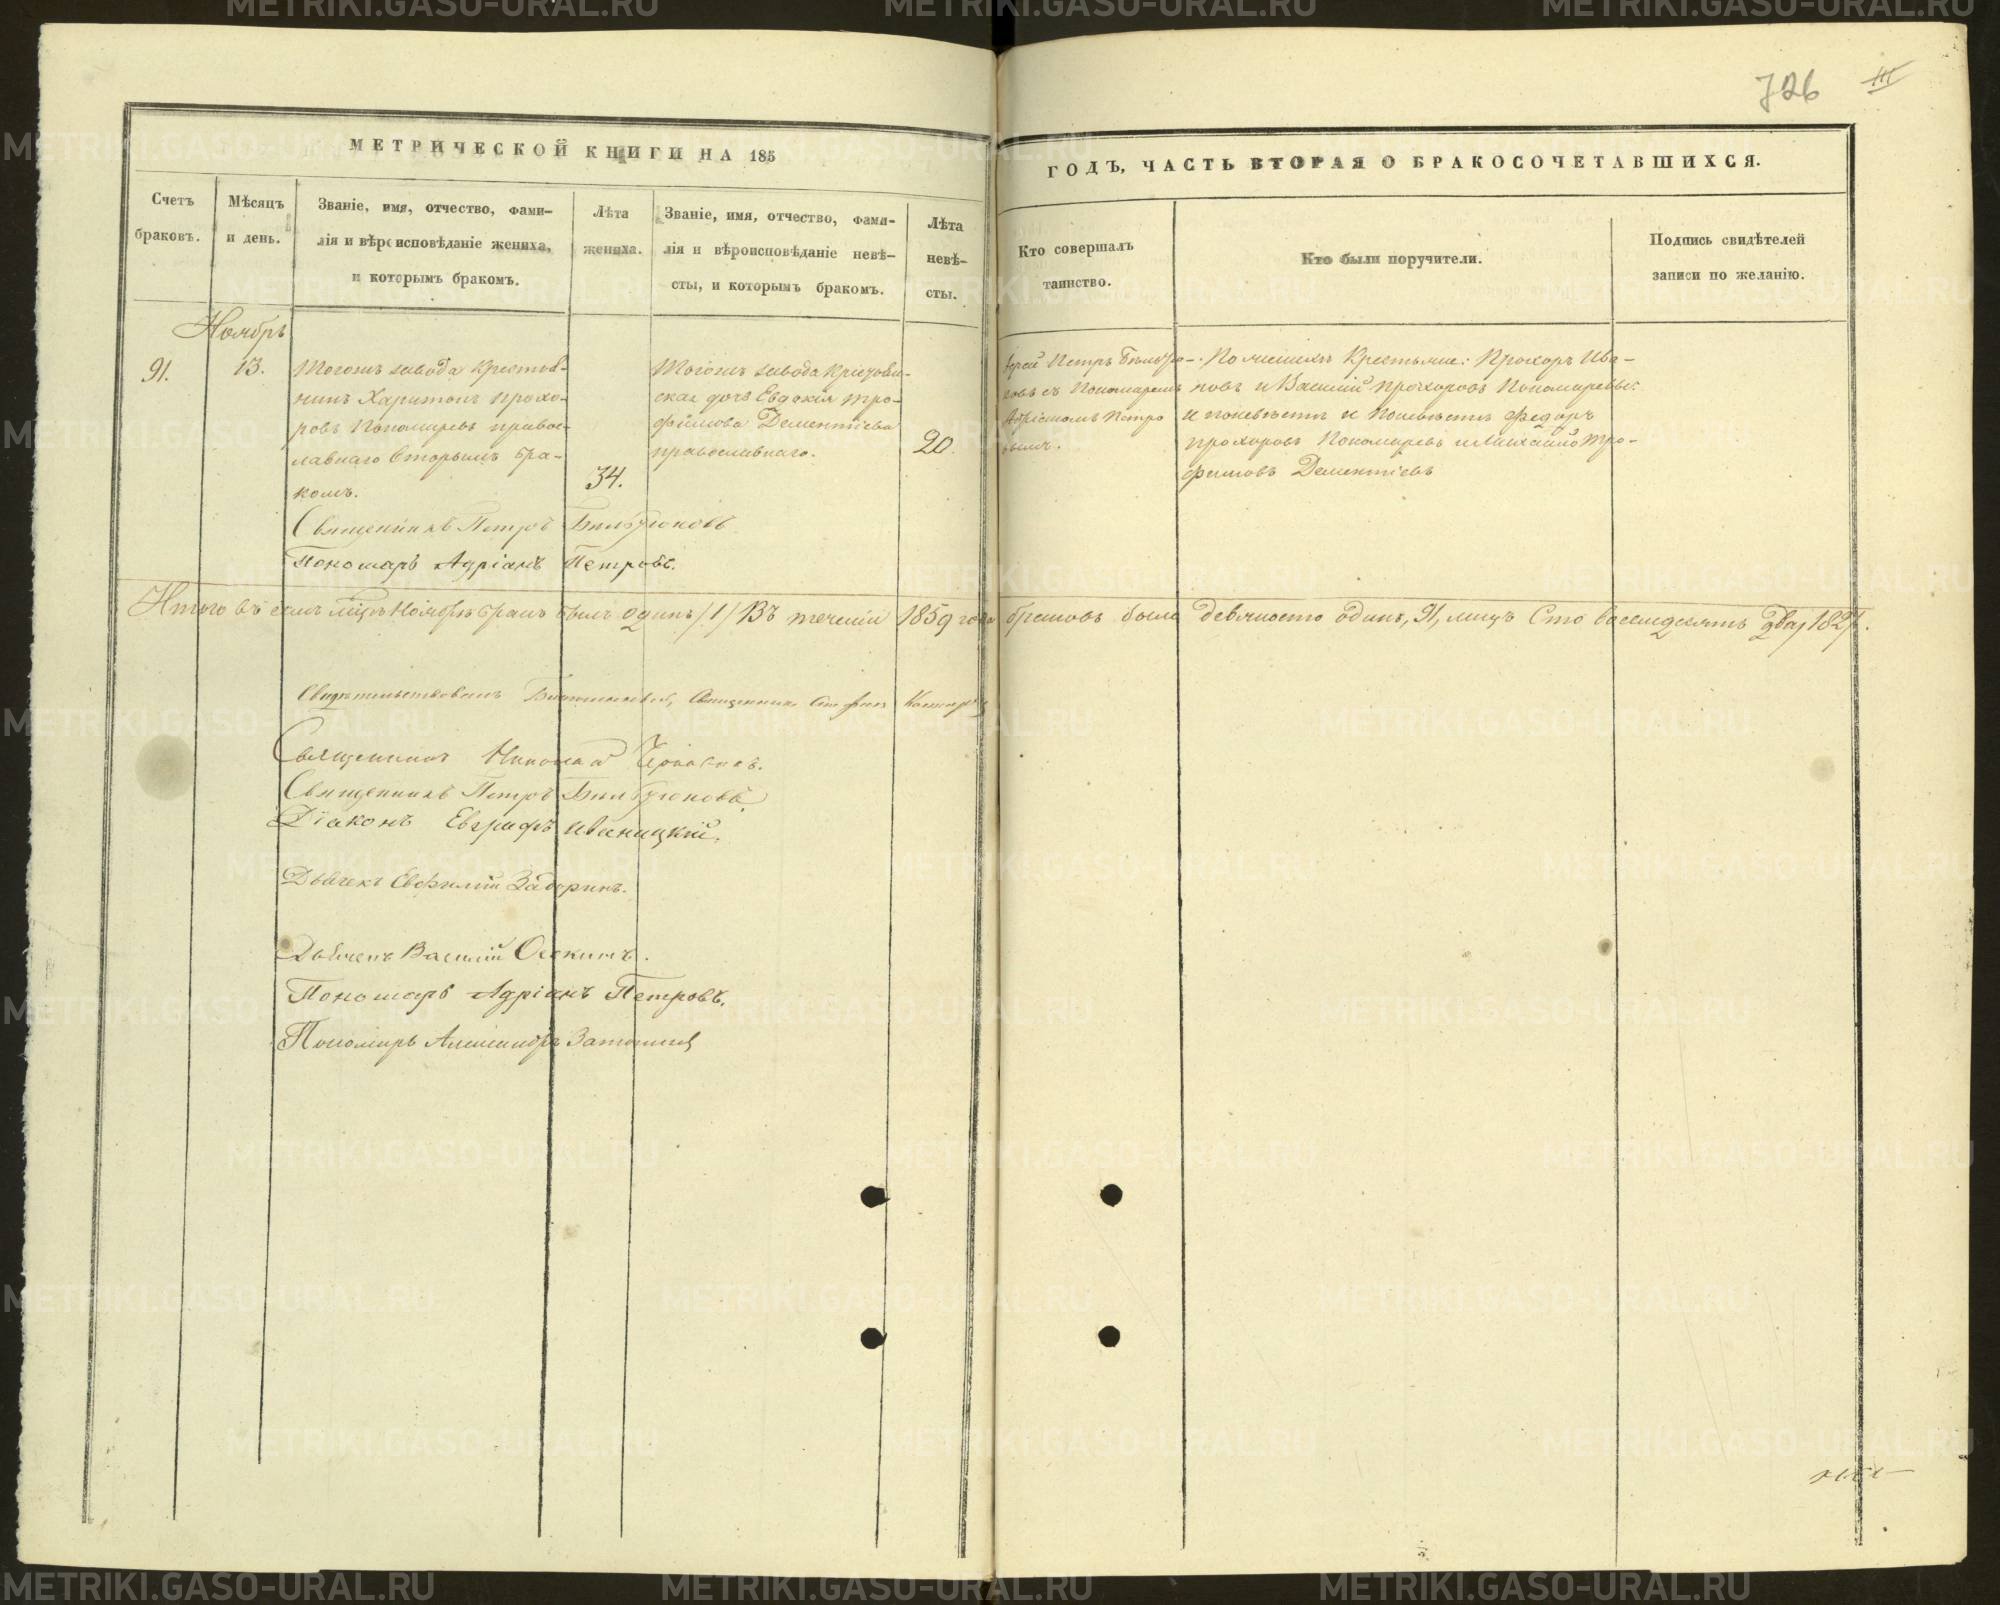 726
МЕТРИЧЕСКОЙ КНИГИ НА 185
ГОДЪ, ЧАСТЬ ВТОРАЯ О БРАКОСОЧЕТАВШИХСЯ.
Счетъ
браковъ.
Мѣсяцъ
и день.
Званіе, имя, отчество, фами-
лія и вѣроисповѣданіе жениха,
и которымъ бракомъ.
Лѣта
жениха.
Званіе, имя, отчество, фами-
лія и вѣроисповѣданіе невѣ-
сты, и которымъ бракомъ.
Лѣта
невѣ-
сты.
Кто совершалъ
таинство.
Кто были поручители.
Подпись свидѣтелей
записи по желанію.
Ноябрь
91.
13.
Тогожъ завода Крестья-
нинъ Харитонъ Прохо-
ровъ Пономаревъ правос-
лавнаго вторымъ бра-
комъ.
34.
Тогожъ завода
дочь Евдокія Тро-
фимова Дементіева
православнаго.
20.
Іерей Петръ
съ Пономаремъ
Адріаномъ Петро
вымъ.
По женихѣ Крестьяне: Прохоръ Ива-
новъ и Василій Прохоровъ Пономаревы:
и по невѣстѣ Федоръ
Прохоровъ Пономаревъ и Михайло Тро-
фимовъ Дементіевъ
Священникъ Петръ
Пономарь Адріанъ Петровъ.
Итого въ семъ мцѣ Ноябрѣ бракъ былъ одинъ /1/ Въ теченіи 1859 года браковъ было девяносто одинъ, 91, лицъ Сто восемьдесятъ два, 182.
Свидѣтельствовалъ Священникъ Стефанъ
Священникъ Николай
Священникъ Петръ
Діаконъ Евграфъ Иваницкій.
Дьячекъ Евфимій Задоринъ.
Дьячекъ Василій
Пономарь Адріанъ Петровъ.
Пономарь Александръ
METRIKI.GASO-URAL.RU